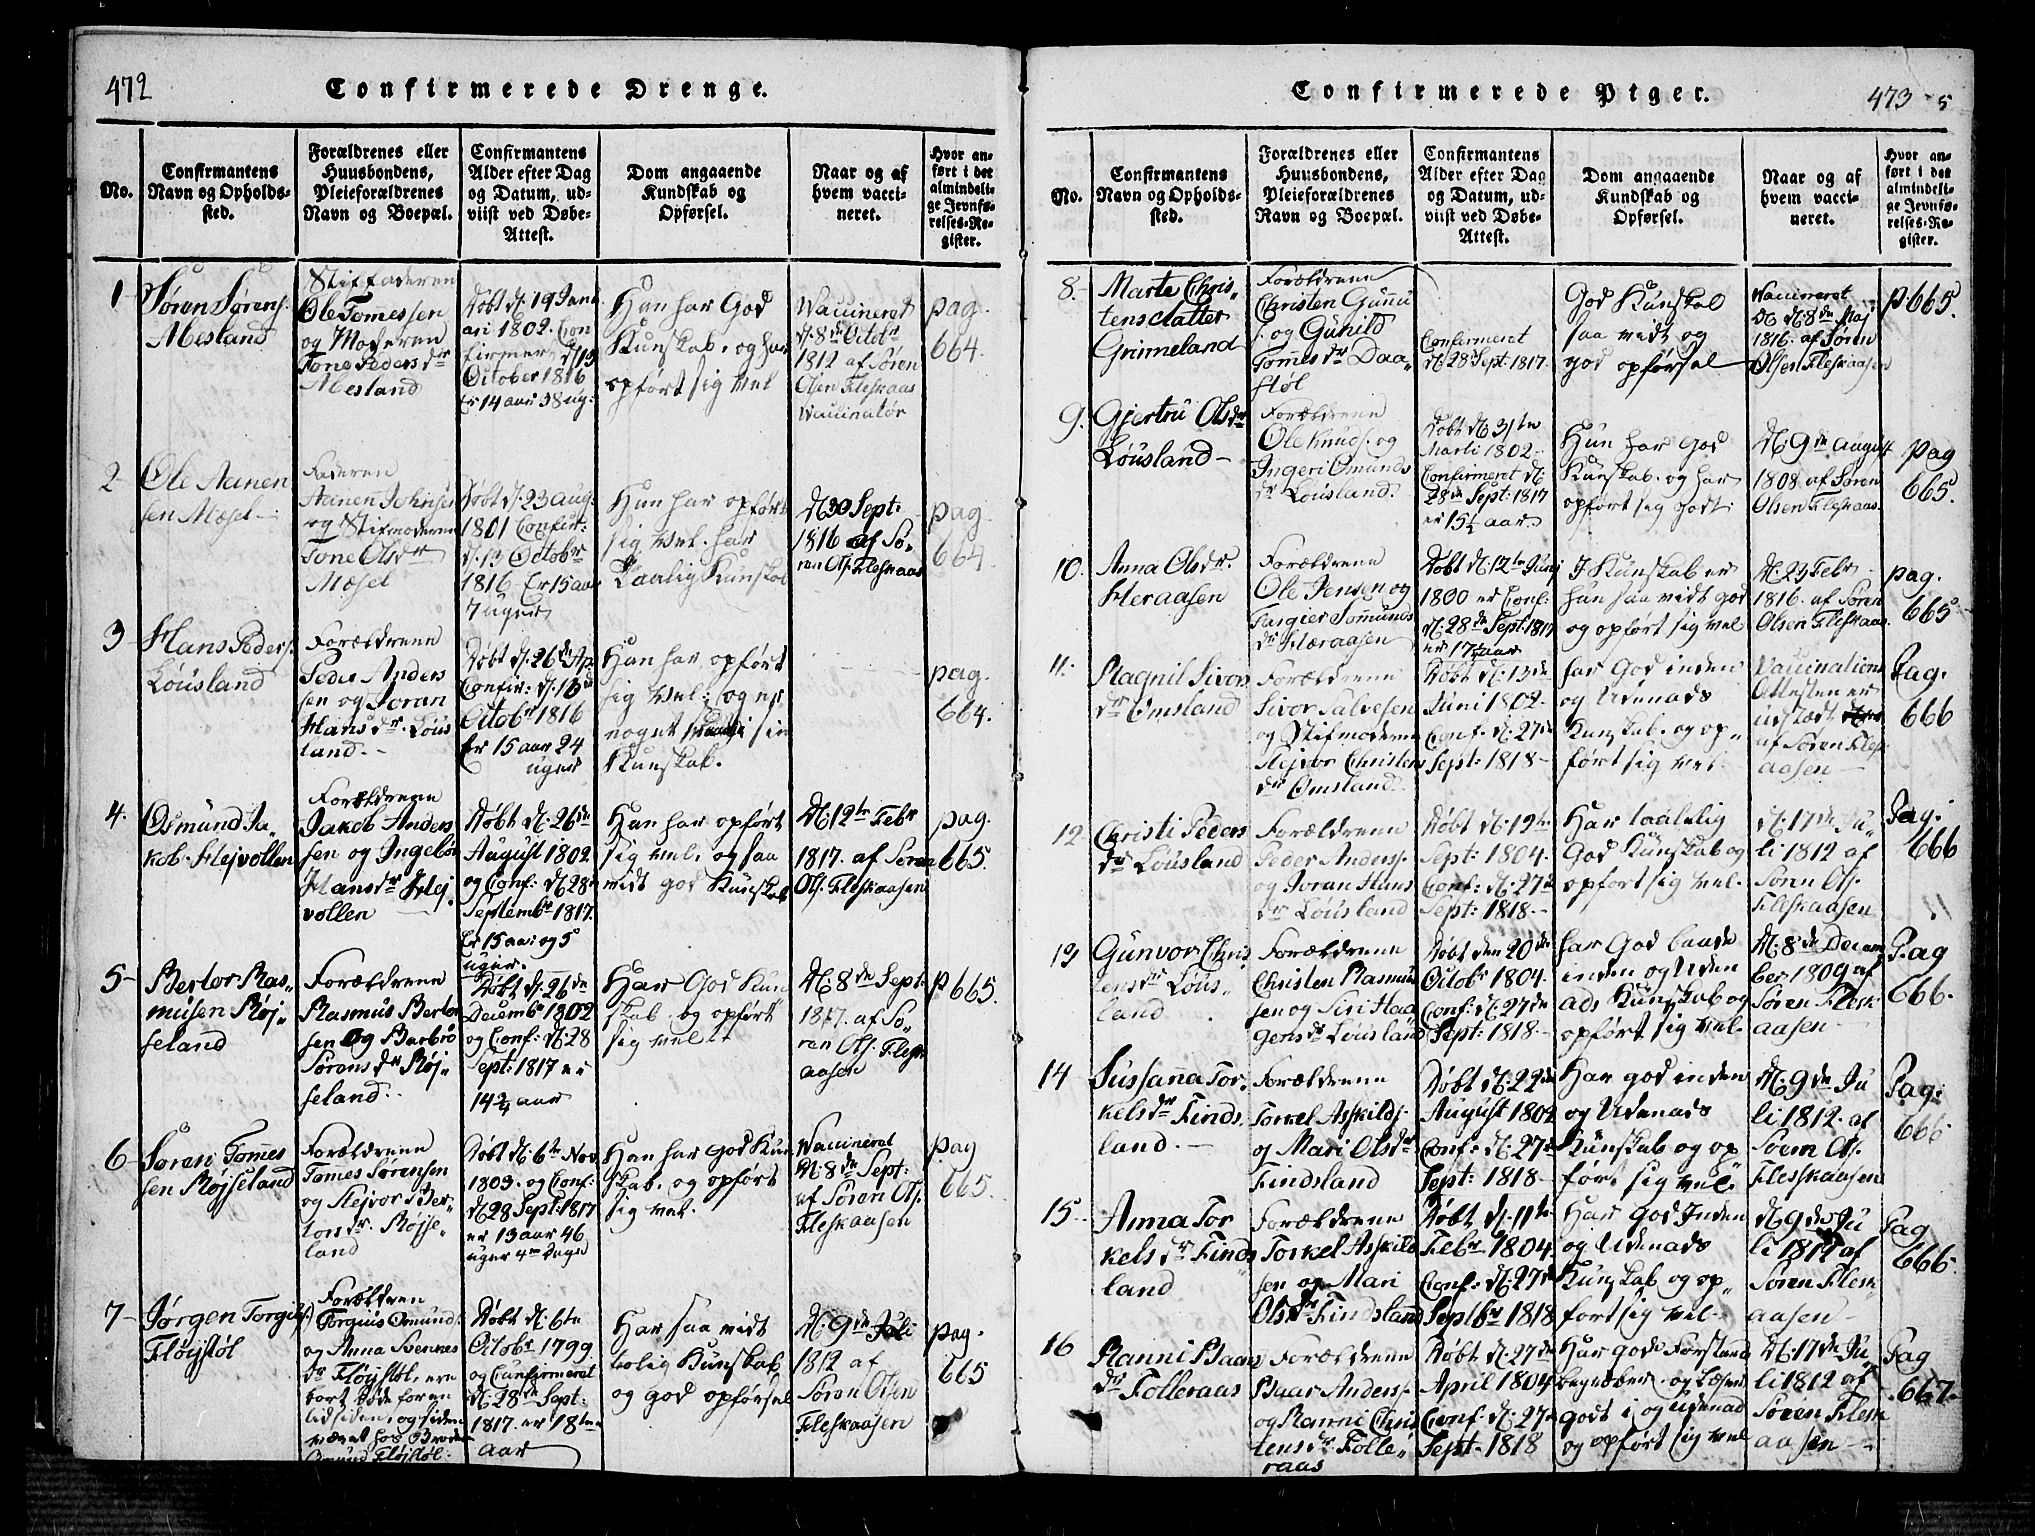 472
Confirmerede Drenge.
No.
Confirmantens
Navn og Opholds-
sted.
Forældrenes eller
Huusbondens,
Pleieforældrenes
Navn og Boepæl.
Confirmantens
Alder efter Dag
og Datum, ud-
viist ved Døbe-
Attest.
Dom angaaende
Kundskab og
Opførsel.
Naar og af
hvem vacci-
neret.
Hvor an-
ført i det
almindeli-
ge Jevnfø-
relses-Re-
gister.
1
Søren Sørens.
Mesland
Stiffaderen
Ole Tom̄essen
og Moderen
Tone Pedersdr
Mesland
Døbt d. 19 Janu
ari 1802. Con
firmer d 13
October 1816
Er 14 aar 38 ug:
Han har God
Kunskab, og har
opført sig vel
Vaccineret
d. 8de Octobr
1812 af Søren
Olsen Fleskaas
Vaccinatør
pag.
664.
2
Ole Aanen
sen Mæsel
Faderen
Aanen Johnsen
og Stifmoderen
Tone Olsdr
Mæsel
Døbt d. 23 aug:
1801 Confir:
d. 13 Octobr
1816 Er 15 aar
7 uger
Han har opført
sig vel. har
Taalig Kunskab
D 30 Sept:
1816 af Sø-
ren Ols. Fleskaas
pag.
664.
3
Hans Peders.
Løusland
Forældrene
Peder Anders
sen og Joran
Hansdr. Løus
land.
Døbt d. 26de Ap.
Confir: d. 13d
Octobr 1816
Er 15 aar 24
uger
Han har opført
sig vel: og er
noget i sin
Kunskab.
pag.
664.
4.
Osmund Ja-
kob. Hejvollen
Forældrene
Jakob Anders
sen og Ingebør
Hansdr Hej
vollen
Døbt d. 26de
August 1802
og Conf: d. 28
Septembr 1817.
Er 15 aar og 5
uger.
Han har opført
sig vel. og saa
vidt god Kunskab
D. 12te Febr
1817. af Søren
Ols. Fleskaasen
pag.
665.
5
Bertor Ras-
musen Røj-
seland
Forældrene
Rasmus Bertor
sen og Barbro
Sørensdr Røj-
seland.
Døbt d. 26de
Decembr 1802
og Conf: d. 28
Sept: 1817 er
14 3/4 aar
Har God Kun
skab og opført
sig vel
D. 8de Sept
1817. af Sø-
ren Ols. Flesk
aasen
P 665.
6
Søren Tom̄es
sen Røjseland
Forældrene
Tomes Sørensen
og Hejvor Ber-
torsdr. Røjse-
land
Døbt d. 6te Nov
1803. og Conf:
d 28 Sept: 1817
er 13 aar 46
uger 4re dage
Han har God Kun
skab. og opført
sig vel.
Vaccineret
d. 8de Sept:
af Søren Ols.
Fleskaasen
pag
665.
7
Jørgen Torgius
Fløjstøl
Forældren
Torgius Omunds.
og Anna Svennes
dr Fløjstøl, ere
bort døde for en
tid siden, og siden
været hos Broder
Omund Fløjstøl.
Døbt d. 6te
Octobr 1799
og Cunfirmeret
d. 28de Sept:
1817. er 18ten
aar
Har saa vidt
tolig Kunskab
og god opførsel
D. 9de Juli
1812 af
Søren Olsen
Fleskaasen
pag.
665
473
5
Confirmerede Piger.
No.
Confirmantens
Navn og Opholds-
sted.
Forældrenes eller
Huusbondens,
Pleieforældrenes
Navn og Boepæl.
Confirmantens
Alder efter Dag
og Datum, ud-
viist ved Døbe-
Attest.
Dom angaaende
Kundskab og
Opførsel.
Naar og af
hvem vacci-
neret.
Hvor an-
ført i det
almindeli-
ge Jevnfø-
relses-Re-
gister.
8.
Marte Chris-
tensdatter
Grimeland
Forældrene
Christen Gunnu
s. og Gunild
Tom̄esdr Daa-
støl
Confirmeret
d. 28 Sept: 1817.
God Kunskab
saa vidt og
god opførsel
Vaccineret
d. 8de Maj
1816. af Søren
Olsen Fleskaasen
P 665.
9.
Gjertru Olsdr
Løusland
Forældrene
Ole Knuds. og
Ingeri Omunds
dr Løusland.
Døbt d. 31te
Marti 1802
Confirmeret d.
28de Sept: 1817
er 15½ aar.
Hun har God
Kunskab. og har
opført sig godt.
D. 9de August
1808 af Søren
Olsen Fleskaas.
pag
665.
10.
Anna Olsdr.
Heraasen
Forældrene
Ole Jensen og
Targier Tom̄unds
dr Hæraasen
Døbt d. 12te Juni
1800 er Conf:
d. 28de Sept: 1817
er 17 aar
I Kunskab er
hun saa vidt god
og opført sig vel
D. 23 Febr
1816. af Søren
Olsen Fleskaas.
pag.
665
11.
Ragnil Sivors
dr Omsland
Forældrene
Sivor Salvesen
og Stifmoderen
Hejvor Christens
dr Omsland.
Døbt d. 13de
Juni 1802.
Conf. d. 27de
Sept: 1818
har God inden
og Udenads
Kunskab. og op-
ført sig vel
Vaccinations
Attesten er
udstædt
af Søren Flesk
aasen
Pag.
666
12
Christi Peders
dr Løusland
Forældrene
Peder Anderss.
og Joran Hans
dr Løusland
Døbt d. 19te
Sept: 1804.
Conf: d. 27de
Sept: 1818.
Har taalelig
God Kunskab og
opført sig vel.
D. 17de Ju-
li 1812 af
Søren Ols.
Fleskaasen
Pag:
666
13
Gunvor Chris
tensdr Løus-
land
Forældrene
Christen Rasmus
sen og Siri Haa
gensdr Løusland
Døbt den 20de
Octobr 1804.
Conf: d. 27de
Sept: 1818
har God baade
inden og Uden
ads Kunskab og
opført sig vel.
D. 8de Decem
ber 1809 af
Søren Flesk
aasen
Pag
666.
14
Sussan̄a Tor-
kelsdr Finds
land.
Forældrene
Torkel Asskilds.
og Mari Olsdr
Findsland
Døbt d. 22de
August 1802
Conf: d. 27de
Sept: 1818
Har god inden
og Udenads
Kunskab og op
før. sig vel.
D. 9de Ju
li 1812. af
Søren Ols.
Flesskaasen
Pag:
666
15
Anna Tor
kelsdr Finds
land
Forældrene
Torkel Asskild
sen og Mari
Olsdr Findsland
Døbt d. 11te
Febr 1804.
Conf: d. 27de
Septbr 1818
Har God Inden
og Udenads
Kunskab og op-
ført sig vel
D. 9de Ju
li 1812 af
Søren Flesk
aasen
Pag
666
16
Ranni Baars
dr Folleraas
Forældrene
Baar Anderss.
og Ranni Chris
tensdr Folle-
raas
Døbt d. 27de
April 1804
Conf: d. 27de
Sept: 1818
Har gode Forstand
begreber og Læser
godt i, og udenad
og opført sig vel
D. 17de Ju
li 1812 af
Søren Flesk
aasen
Pag
667.